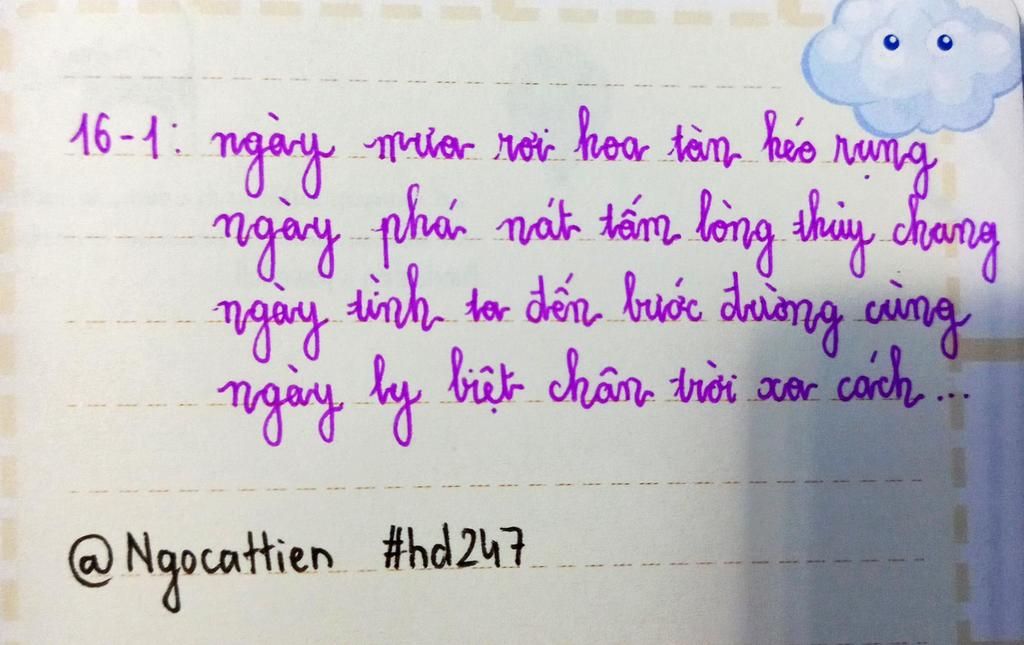 16-1: ngày mưa rơi hoa tàn héo rụng
ngày phá nát tấm lòng thủy chang
ngày tình ta đến bước đường cùng
ngày ly biệt chân trời xa cách...
@Ngocattien #hd247